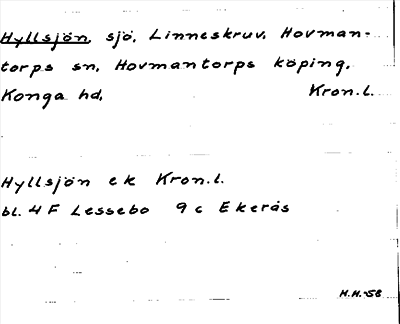 Hyllsjön, sjö, Linneskruv, Hovman-
torps sn, Hovmantorps köping,
Konga hd, Kron.l.
Hyllsjön ek Kron.l.
bl. 4 F Lessebo 9 c Ekerås
H.H.-58